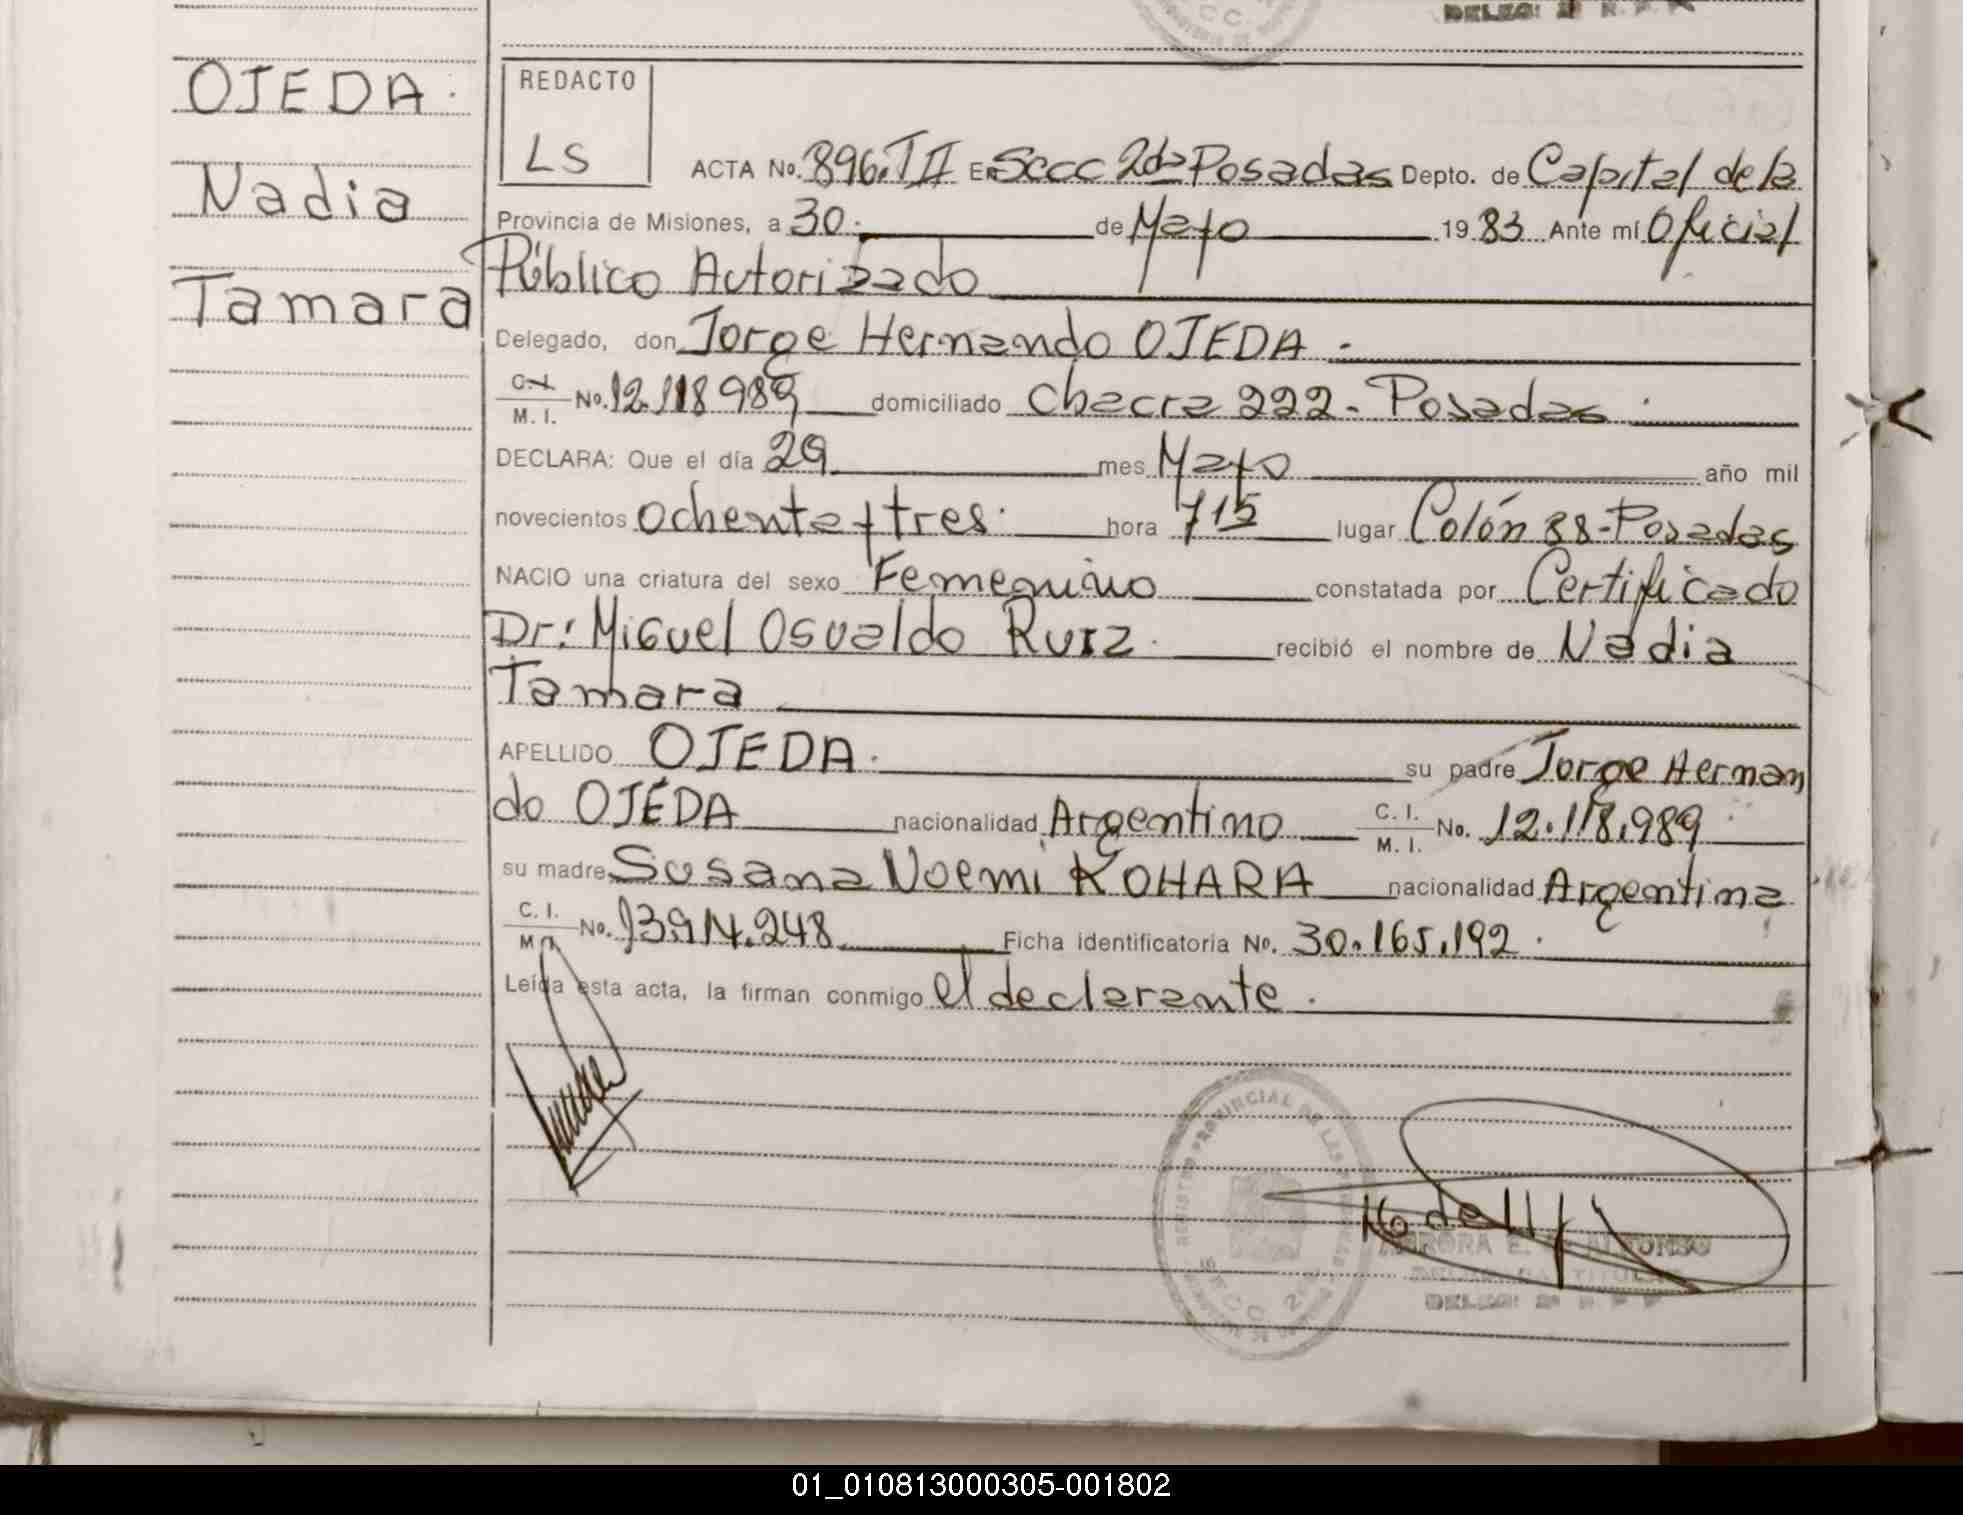 DELEG: 2ª R. P. P.
OJEDA.
Nadia
Tamara
REDACTO
LS
ACTA No. 896.TII En Secc 2da Posadas Depto. de Capital de la
Provincia de Misiones, a 30. de Mayo 19 83 Ante mí Oficial
Público Autorizado
Delegado, don Jorge Hernando OJEDA -
C. I. / M. I. No. 12.118 989 domiciliado Chacra 222 - Posadas.
DECLARA: Que el día 29 mes Mayo año mil
novecientos ochenta y tres. hora 715 lugar Colón 88-Posadas
NACIO una criatura del sexo Femenino constatada por Certificado
Dr: Miguel Osvaldo Ruiz. recibió el nombre de Nadia
Tamara
APELLIDO OJEDA. su padre Jorge Hernan
do OJEDA nacionalidad Argentino C. I. / M. I. No. 12.118.989
su madre Susana Noemi KOHARA nacionalidad Argentina
C. I. / M. I. No. Ficha identificatoria No. 30.165.192.
Leída esta acta, la firman conmigo el declarante.
REGISTRO PROVINCIAL DE LAS
SECC 2
AURORA E. DE ALFONSO
DELEGADA TITULAR
DELEG: 2ª R. P. P.
01_010813000305-001802